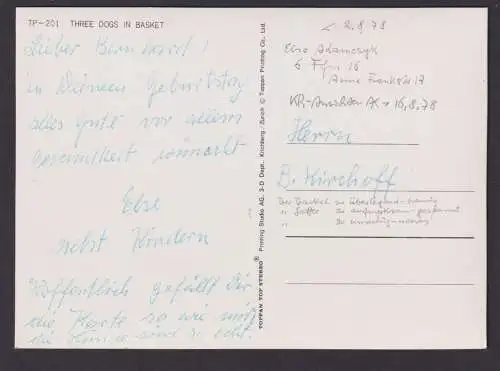 TP-201 THREE DOGS IN BASKET
Lieber Bernhard!
zu Deinem Geburtstag
alles Gute vor allem
Gesundheit wünscht
Else
nebst Kindern
Hoffentlich gefällt Dir
die Karte so wie mir,
die sind so echt.
TOPPAN TOP STEREO® Printing Studio AG, 3-D Dept., Kirchberg/Zürich © Toppan Printing Co., Ltd.
2.8.78
Else Adamczyk
6 Ffm 16
Anne Frank Str 17
AK → 16.8.78
Herrn
B. Kirchhoff